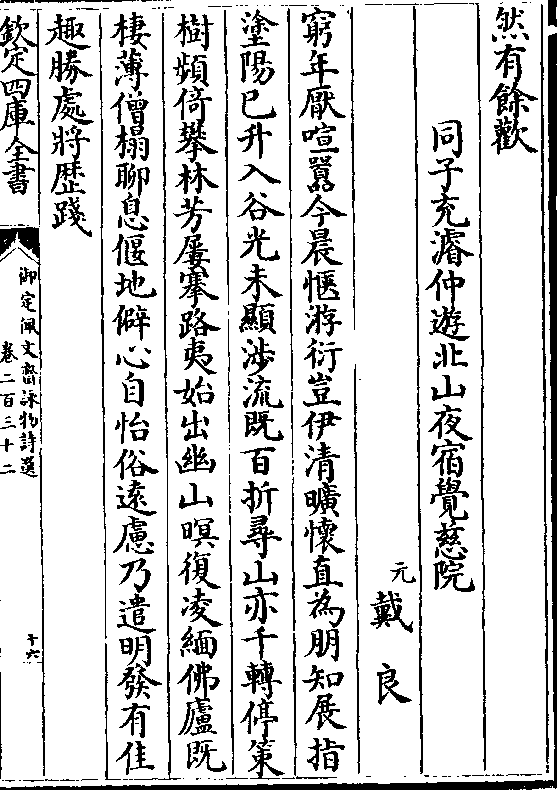 然有餘歡
同子充濬仲遊北山夜宿覺慈院
元戴良
窮年厭喧囂今晨愜游衍豈伊清曠懷直為朋知展指
塗陽已升入谷光未顯涉流既百折尋山亦千轉停策
樹頻倚攀林芳屢搴路夷始出幽山暝復凌緬佛廬既
棲薄僧榻聊息偃地僻心自怡俗遠慮乃遣明發有佳
趣勝處將歴踐
欽定四庫全書
御定佩文齋詠物詩選
卷二百三十二
十六